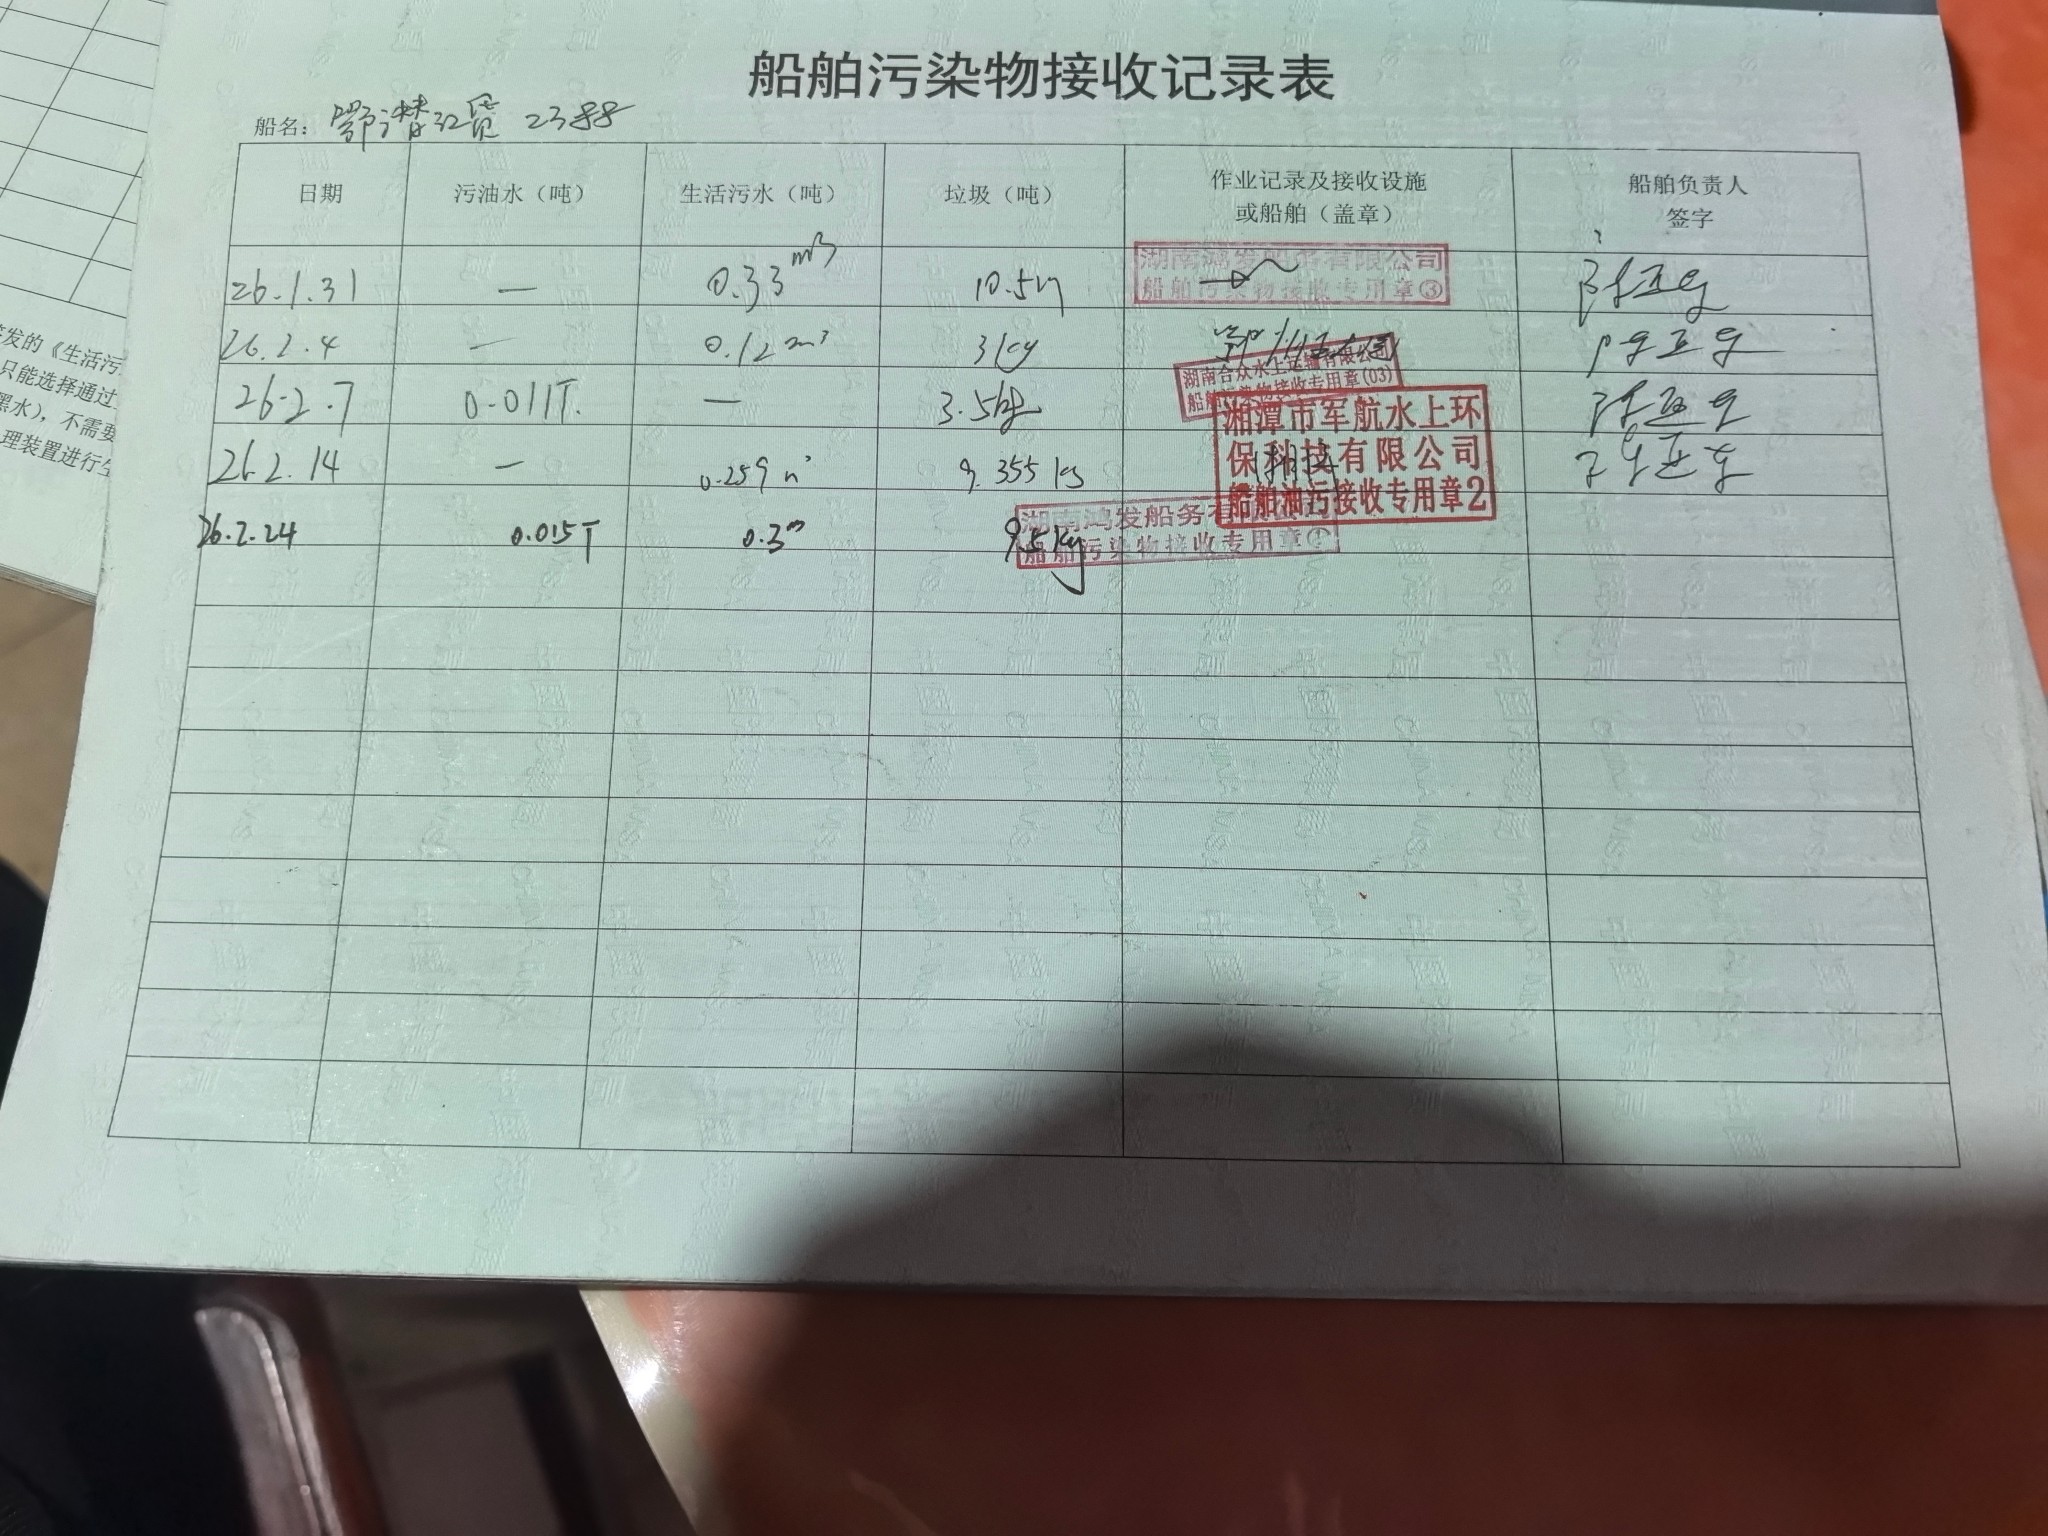 船舶污染物接收记录表
船名: 鄂潜江货 2388
日期 污油水（吨） 生活污水（吨） 垃圾（吨） 作业记录及接收设施 或船舶（盖章） 船舶负责人 签字
26.1.31 — 0.33 m³ 10.5kg
湖南鸿发船务有限公司
船舶污染物接收专用章③
26.2.4 — 0.12 m³ 3kg
湖南合众水上运输有限公司
船舶污染物接收专用章(03)
26.2.7 0.011T. — 3.5kg
湘潭市军航水上环
保科技有限公司
船舶油污接收专用章2
26.2.14 — 0.259 m³ 9.355 kg
26.2.24 0.015T 0.3m 9.5kg
湖南鸿发船务有
船舶污染物接收专用章①
发的《生活污
只能选择通过
黑水），不需要
理装置进行生